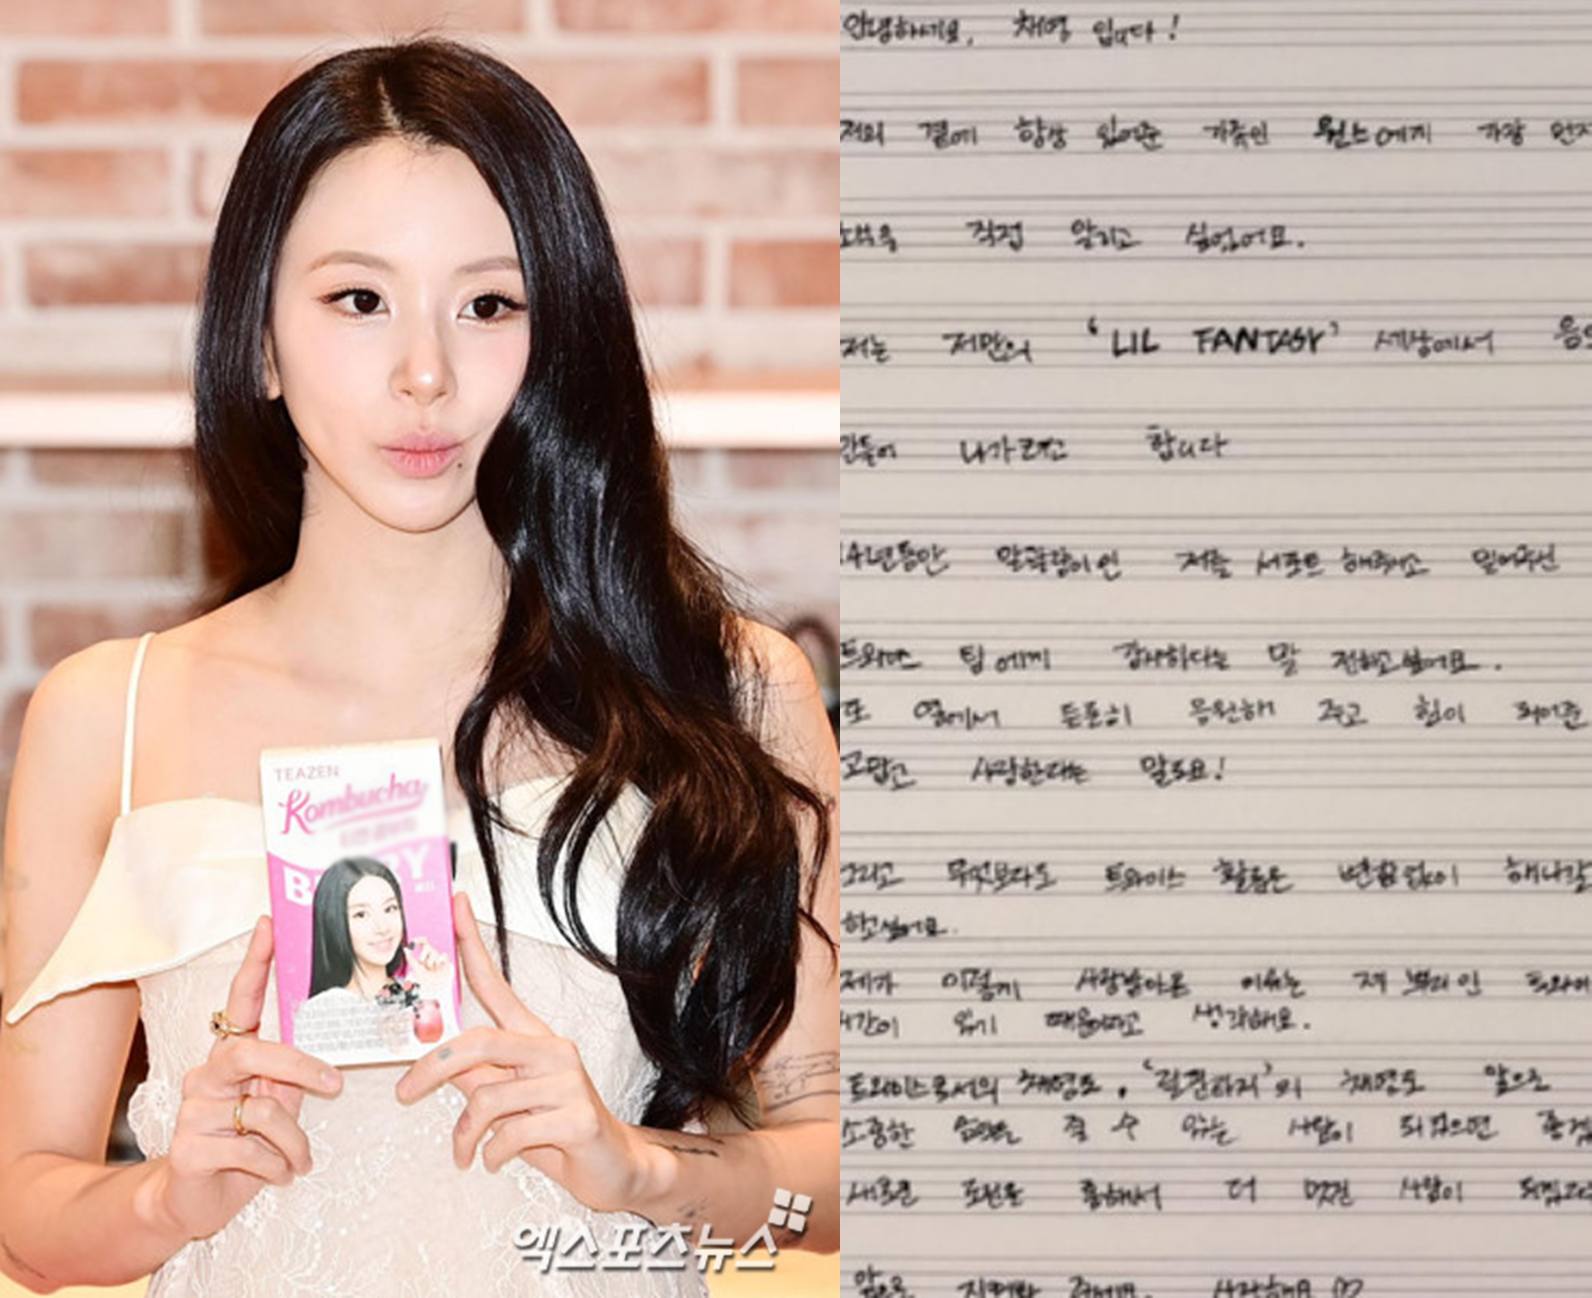 TEAZEN
Kombucha
BERRY
엑스포츠뉴스
안녕하세요, 채영 입니다!
저의 곁에 항상 있어준 가족인 원스에게 가장 먼저
소식을 직접 알리고 싶었어요.
저는 저만의 'LIL FANTASY' 세상에서 음악
만들어 나가려고 합니다
14년동안 말괄량이인 저를 서포트 해주시고 믿어주신
트와이스 팀에게 감사하다는 말 전하고싶어요.
또 옆에서 든든히 응원해 주고 힘이 되어준
고맙고 사랑한다는 말도요!
그리고 무엇보다도 트와이스 활동은 변함없이 해나갈
하고싶어요.
제가 이렇게 사랑받아온 이유는 제 뿌리인 트와이
시간이 있기 때문이라고 생각해요.
트와이스로서의 채영도, '김완하지'의 채영도 앞으로
소중한 음악을 줄 수 있는 사람이 되었으면 좋겠
새로운 도전을 통해서 더 멋진 사람이 되겠다
앞으로 지켜봐 주세요. 사랑해요♡